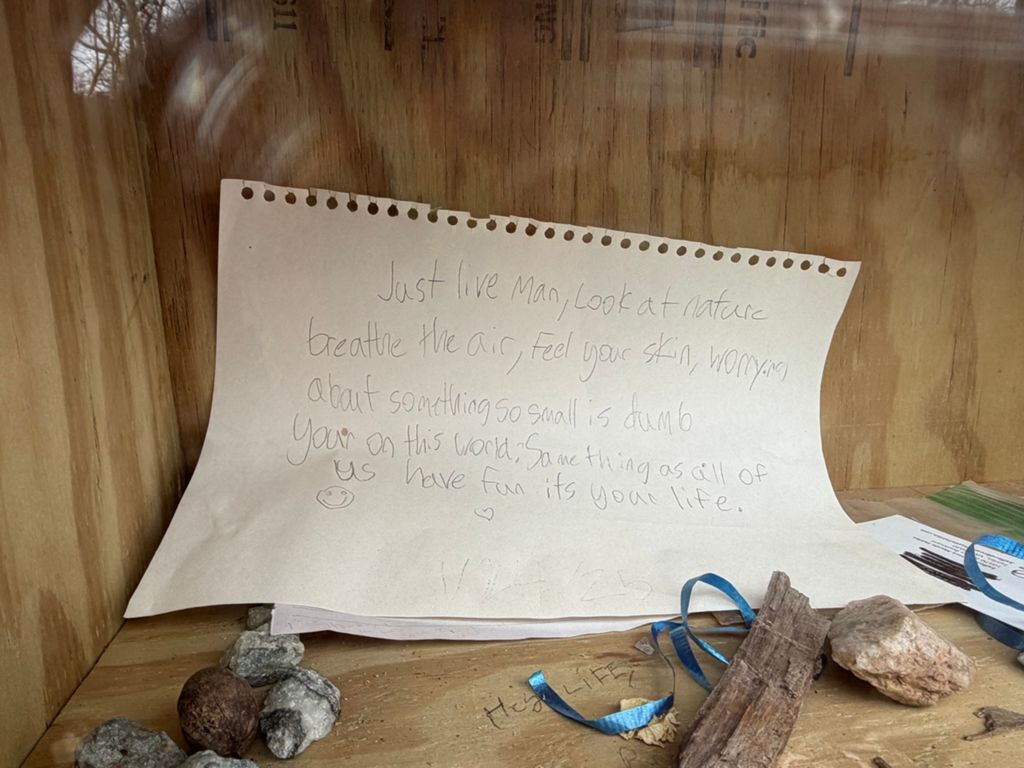 Just live Man, Look at nature
breathe the air, Feel your skin, worrying
about something so small is dumb
your on this world. Same thing as all of
us have fun its your life.
1/24/25
Hey LIFE,